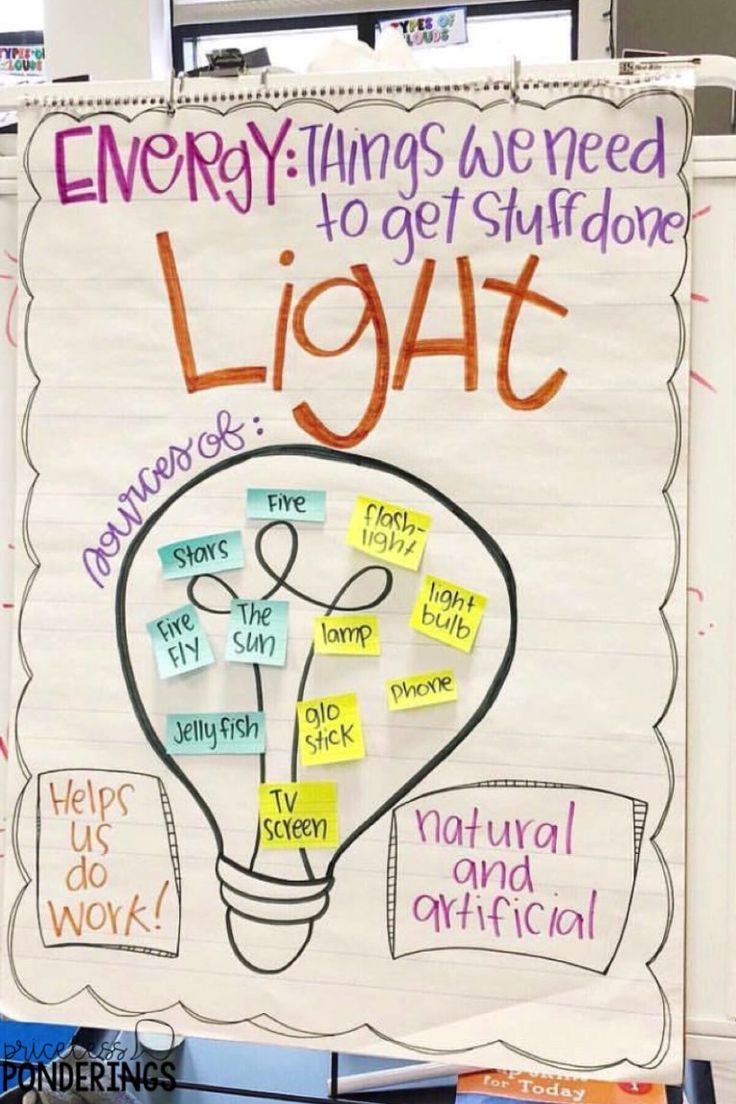 TYPES OF
CLOUDS
TYPES OF
CLOUDS
ENERGY: THINGS WE NEED
to get stuff done
LigHt
sources of:
Fire
flash-
light
Stars
light
bulb
Fire
FLY
The
Sun
lamp
phone
Jellyfish
glo
stick
TV
screen
Helps
us
do
work!
natural
and
artificial
priceless
PONDERINGS
for Today